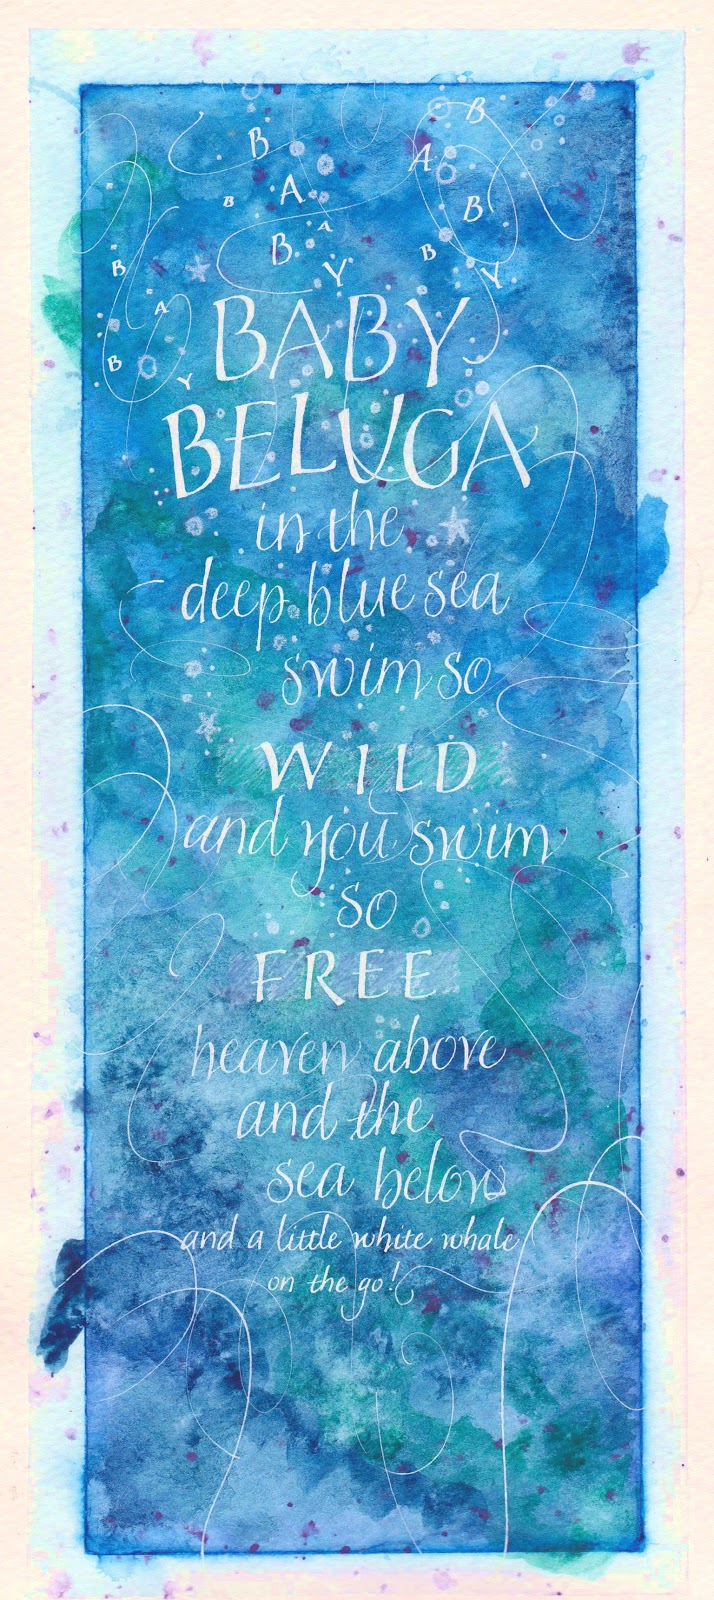 B
A
B
Y
B
A
B
Y
B
A
B
Y
B
A
B
Y
BABY
BELUGA
in the
deep blue sea
swim so
WILD
and you swim
so
FREE
heaven above
and the
sea below
and a little white whale
on the go!